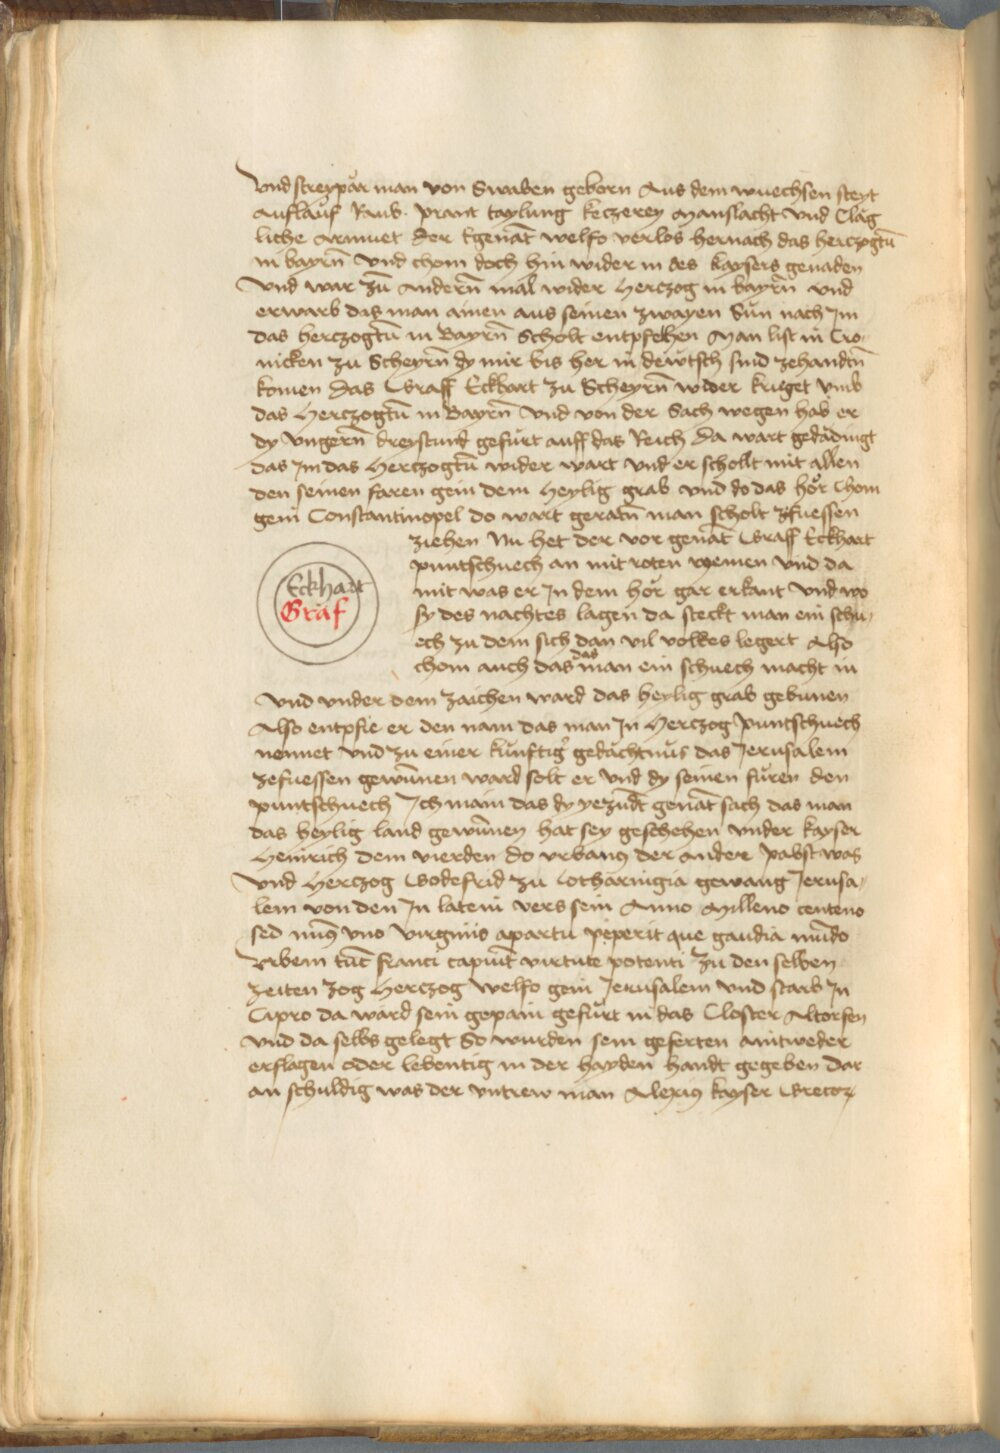 Vnd streypär man von Swaben geborn Aus dem wuechsen steyt
Auflauf Raub. prant taylung keczerey Manslacht vnd Cläg
liche Armuet Der Egenāt welfo verlos hernach das herczogtū
in bayrn̄ Vnd chom doch hin wider in des kaysers genaden
Vnd war zū Andern̄ mal wider Herczog in bayrn̄ vnd
erwarb das man ainen aus seinen zwayen Sün nach Jm
das herczogtū in Bayrn̄ Scholt entpfehen Man list in Cro-
nicken zu Scheyrn̄ dy mir bis her in dewtsch sind zehandn̄
komen Das Graff Eckhart zu Scheyrn̄ wider krieget vmb
das Herczogtū in Bayrn̄ Vnd von der Sach wegen hab er
dy Vngern̄ dreystund gefürt auff das Reich Da wart gedädingt
das Jm das Herczogtū wider wart Vnd er schollt mit allen
den seinen faren gein dem Heylig grab vnd do das hör Chom
gein Constantinopel do wart geratn̄ man scholt zfuessen
ziehen Nu het der vor genāt Graff Eckhart
puntschuech an mit roten ryemen Vnd da
mit was er Jn dem hör gar erkant Vnd wo
sy des nachtes lagen da steckt man ein schu-
ech zu dem sich dan vil volkes legert Also
chom auch das das man ein schuech macht in
Eckhart
Graf
Vnd vnder dem zaichen ward das heylig grab gebunen
Also entpfie er den nam das man Jn Herczog puntschuech
nennet Vnd zu einer künftig̉ gedächtnüs das Jerusalem
zefuessen gewūnen ward solt er Vnd dy seinen füren den
puntschuech Jch main das dy yezūdt genāt sach das man
das heylig land gewūnen hat sey geschehen vnder kayser
Heinrich dem vierden do vrbanꝰ der Ander pabst was
Vnd Herczog Godefrid zu Lotharingia gewang Jerusa-
lem von den Jn latein vers sein Anno Milleno centeno
sed minꝰ vno Virginis apartu peperit que gaudia mūdo
Vrbem tūc franci capiūt virtute potenti Zu den selben
zeiten zog Herczog welfo gein Jerusalem vnd starb Jn
Cipro da ward sein gepain gefürt in das Closter Altorfen
vnd da selbs gelegt So wurden sein geferten aintweder
erslagen oder lebentig in der hayden handt gegeben Dar
an schuldig was der vntrew man Alexiꝰ kayser Grecoꝝ